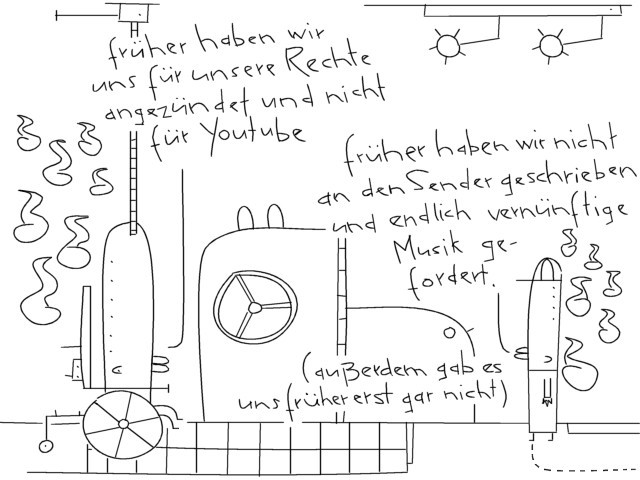 früher haben wir
uns für unsere Rechte
angezündet und nicht
für Youtube
früher haben wir nicht
an den Sender geschrieben
und endlich vernünftige
Musik ge-
fordert.
(außerdem gab es
uns früher erst gar nicht)